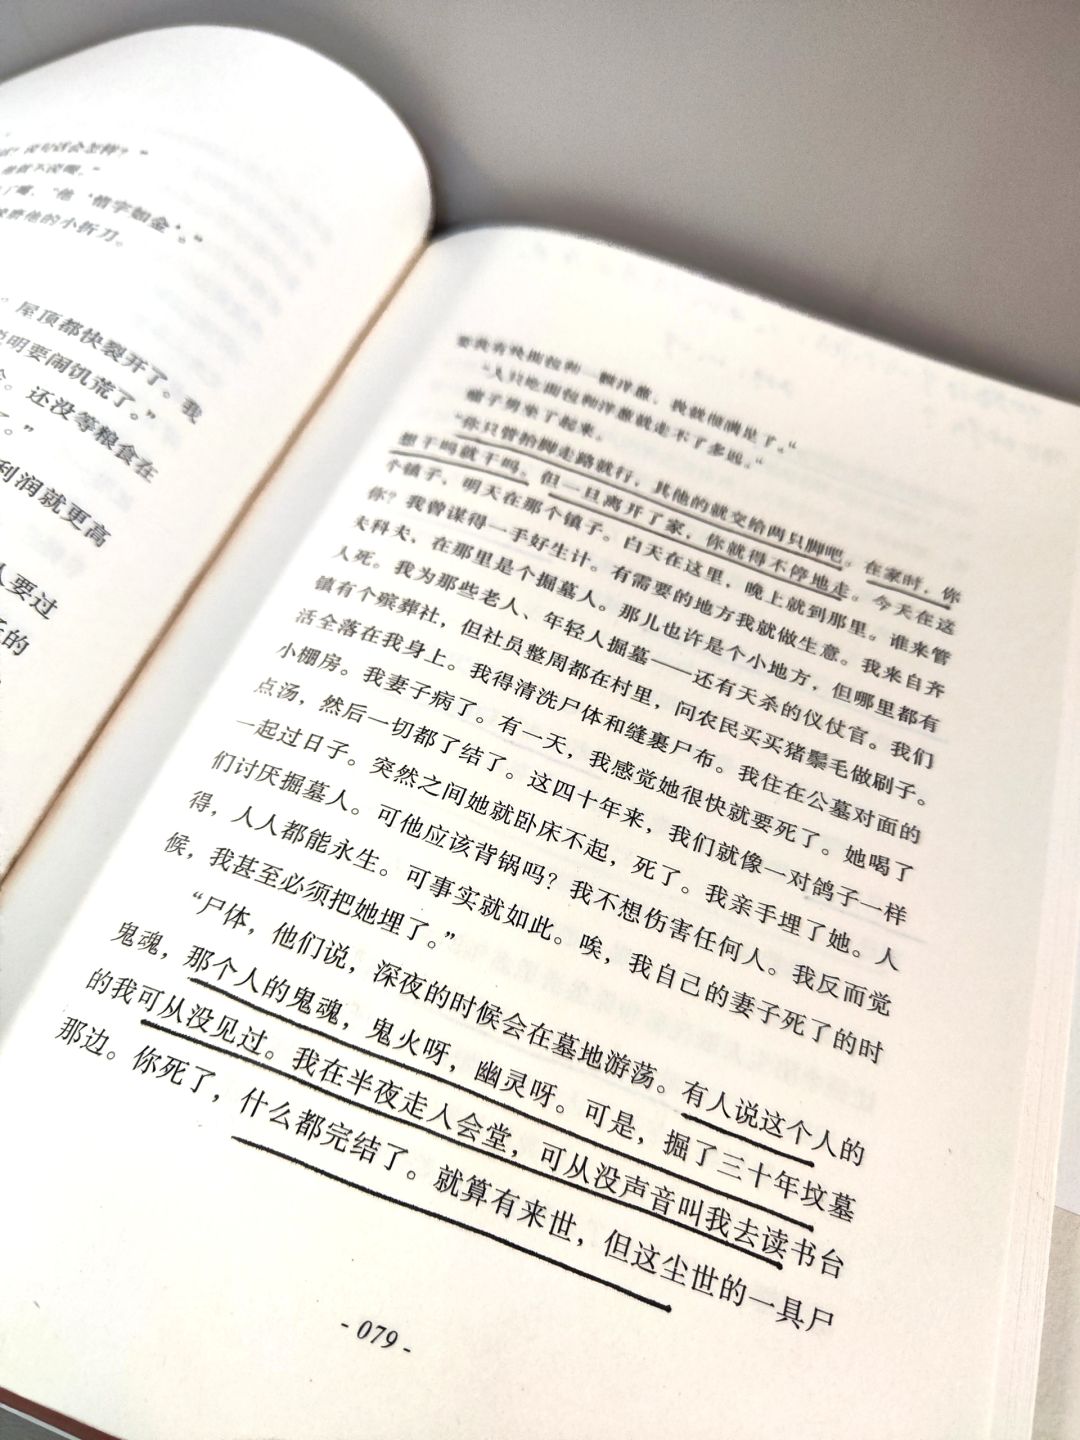 说句话会怎样？”
“他‘惜字如金’。”
他的小折刀。
屋顶都快裂开了。我
说明要闹饥荒了。”
还没等粮食在
了。”
利润就更高
人要过
的
要我有块面包和一颗洋葱，我就彻满足了。”
“人只吃面包和洋葱就走不了多远。”
瘸子男坐了起来。
“你只管抬脚走路就行，其他的就交给两只脚吧。在家时，你
想干吗就干吗。但一旦离开了家，你就得不停地走。今天在这
个镇子，明天在那个镇子。白天在这里，晚上就到那里。谁来管
你？我曾谋得一手好生计。有需要的地方我就做生意。我来自齐
夫科夫，在那里是个掘墓人。那儿也许是个小地方，但哪里都有
人死。我为那些老人、年轻人掘墓——还有天杀的仪仗官。我们
镇有个殡葬社，但社员整周都在村里，问农民买买猪鬃毛做刷子。
活全落在我身上。我得清洗尸体和缝裹尸布。我住在公墓对面的
小棚房。我妻子病了。有一天，我感觉她很快就要死了。她喝了
点汤，然后一切都了结了。这四十年来，我们就像一对鸽子一样
一起过日子。突然之间她就卧床不起，死了。我亲手埋了她。人
们讨厌掘墓人。可他应该背锅吗？我不想伤害任何人。我反而觉
得，人人都能永生。可事实就如此。唉，我自己的妻子死了的时
候，我甚至必须把她埋了。”
“尸体，他们说，深夜的时候会在墓地游荡。有人说这个人的
鬼魂，那个人的鬼魂，鬼火呀，幽灵呀。可是，掘了三十年坟墓
的我可从没见过。我在半夜走人会堂，可从没声音叫我去读书台
那边。你死了，什么都完结了。就算有来世，但这尘世的一具尸
- 079 -